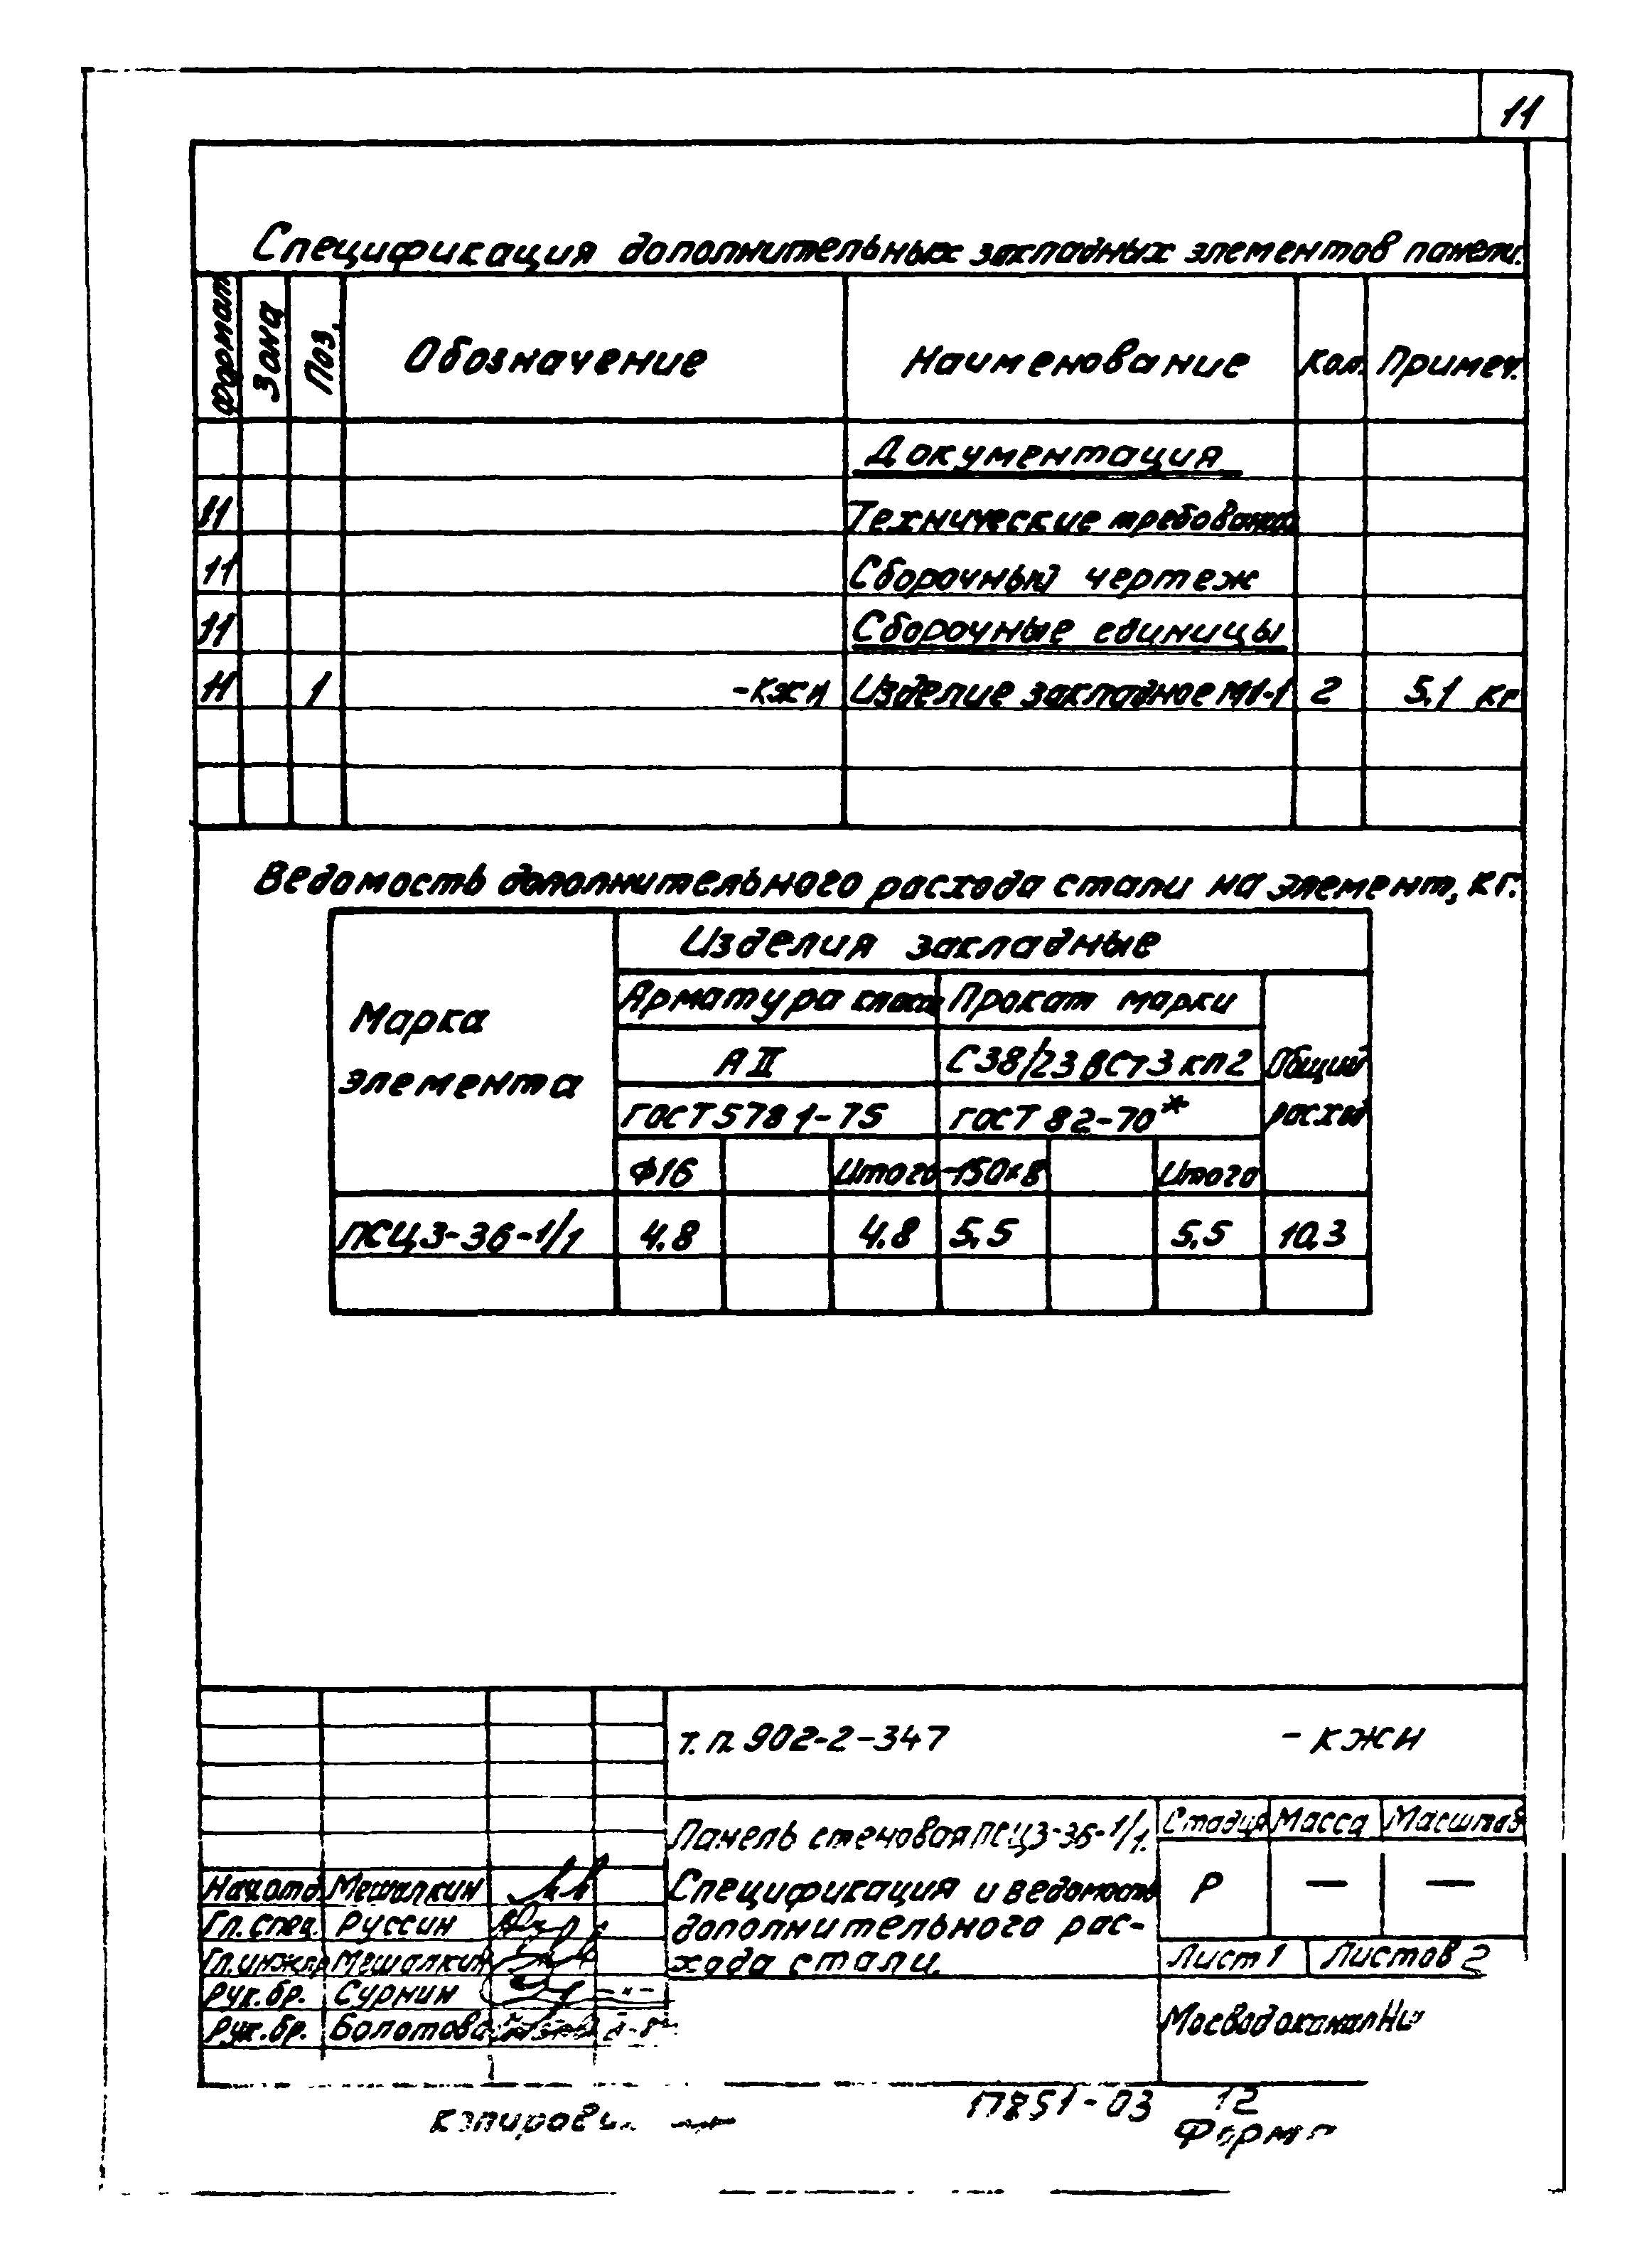 11
Спецификация дополнительных закладных элементов панели.
Формат Зона Поз. Обозначение Наименование Кол. Примеч.
Документация
11 Технические требования
11 Сборочный чертеж
11 Сборочные единицы
11 1 -КЖИ Изделие закладное М1-1 2 5,1 кг
Ведомость дополнительного расхода стали на элемент, кг.
Марка элемента Изделия закладные
Арматура класса Прокат марки Общий расход
А II С38/23 ВСт3кп2
ГОСТ 5781-75 ГОСТ 82-70*
Ф16 Итого -150×8 Итого
ПСЦ3-36-1/1 4.8 4.8 5,5 5,5 10,3
т.п. 902-2-347 - КЖИ
Панель стеновая ПСЦ3-36-1/1. Стадия Масса Масштаб
Нач.отд. Мешалкин Спецификация и ведомость Р — —
Гл. спец. Руссин дополнительного рас-
Гл.инж.пр Мешалкин хода стали. Лист 1 Листов 2
Рук. бр. Сурнин
Рук. бр. Болотова МосводоканалНи
17851-03 12